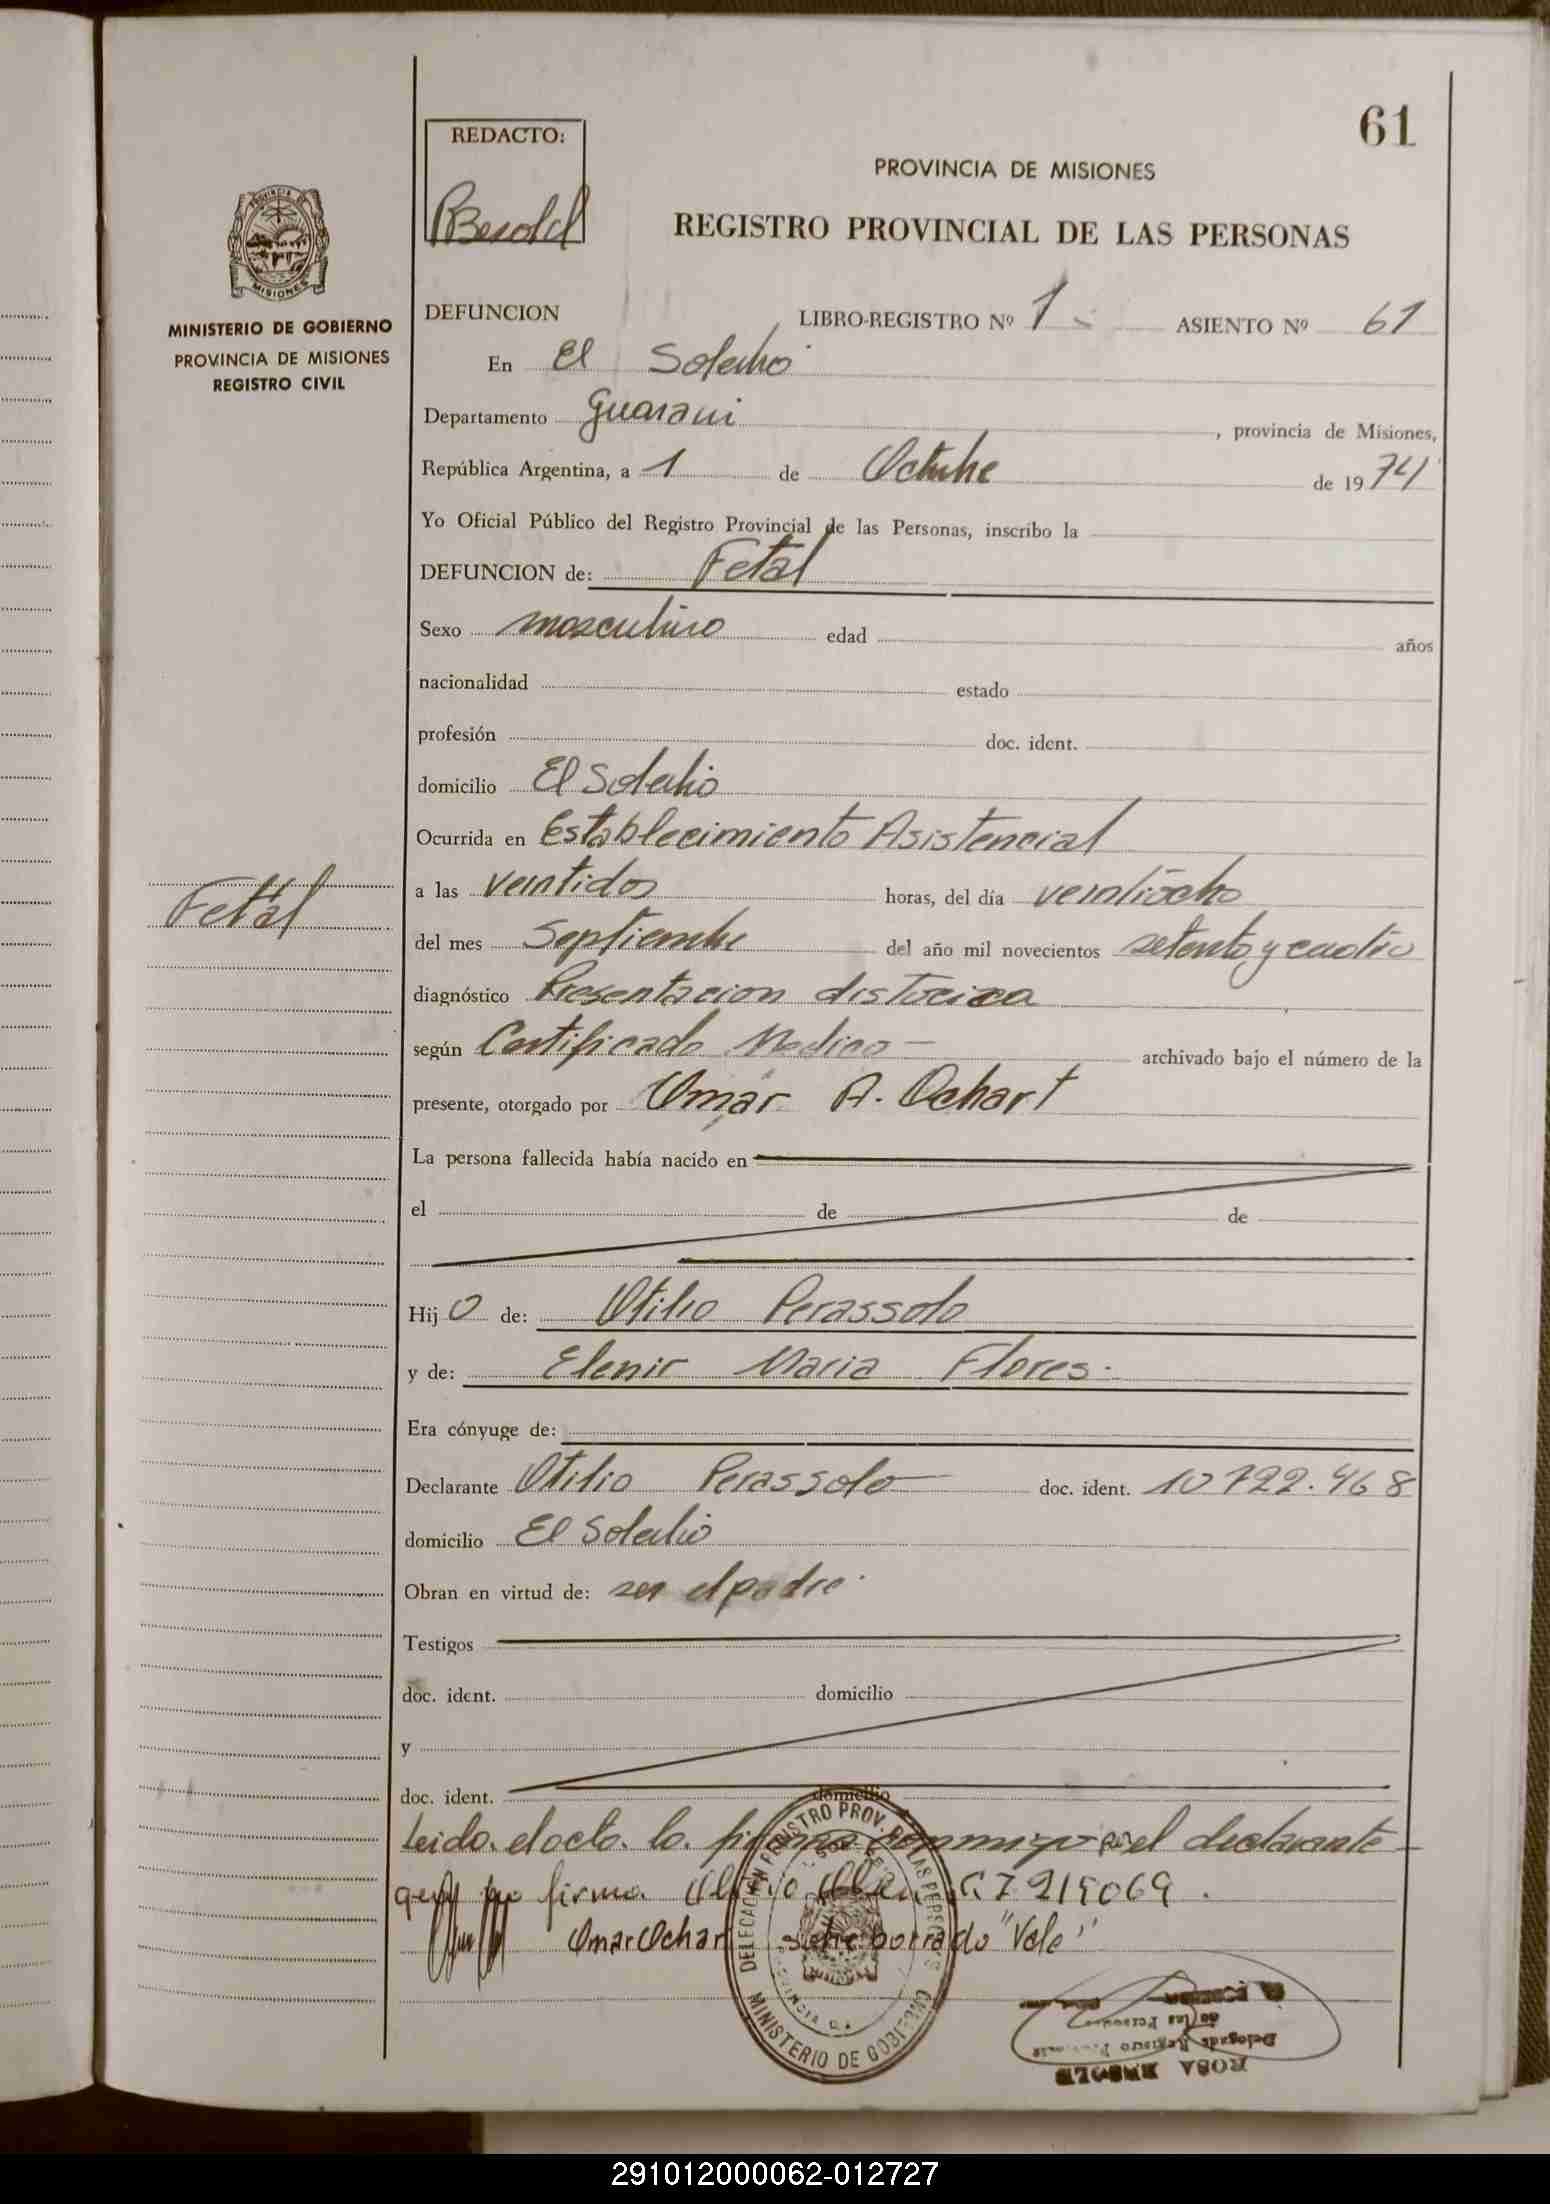 61
REDACTO:
PROVINCIA DE MISIONES
RBesold
REGISTRO PROVINCIAL DE LAS PERSONAS
MINISTERIO DE GOBIERNO
PROVINCIA DE MISIONES
REGISTRO CIVIL
DEFUNCION LIBRO-REGISTRO Nº 1 - ASIENTO Nº 61
En El Soberbio
Departamento Guarani , provincia de Misiones,
República Argentina, a 1 de Octubre de 1974
Yo Oficial Público del Registro Provincial de las Personas, inscribo la
DEFUNCION de: Fetal
Sexo masculino edad años
nacionalidad estado
profesión doc. ident.
domicilio El Soberbio
Ocurrida en Establecimiento Asistencial
Fetal
a las veintidos horas, del día veintiocho
del mes Septiembre del año mil novecientos setenta y cuatro
diagnóstico Presentacion distocica
según Certificado Medico - archivado bajo el número de la
presente, otorgado por Omar A. Ochart
La persona fallecida había nacido en
el de de
Hijo de: Otilio Perassolo
y de: Elenir Maria Flores.
Era cónyuge de:
Declarante Otilio Perassolo doc. ident. 10722.468
domicilio El Soberbio
Obran en virtud de: ser el padre.
Testigos
doc. ident. domicilio
y
doc. ident. domicilio
Leido. el acta. lo. firma conmigo el declarante
no firma 7219069.
Omar Ochart sobre borrado "Vale"
DELEGACION REGISTRO PROV. DE LAS PERSONAS
MINISTERIO DE GOBIERNO
ROSA BESOLD
Delegada Registro Provincial
de las Personas
291012000062-012727